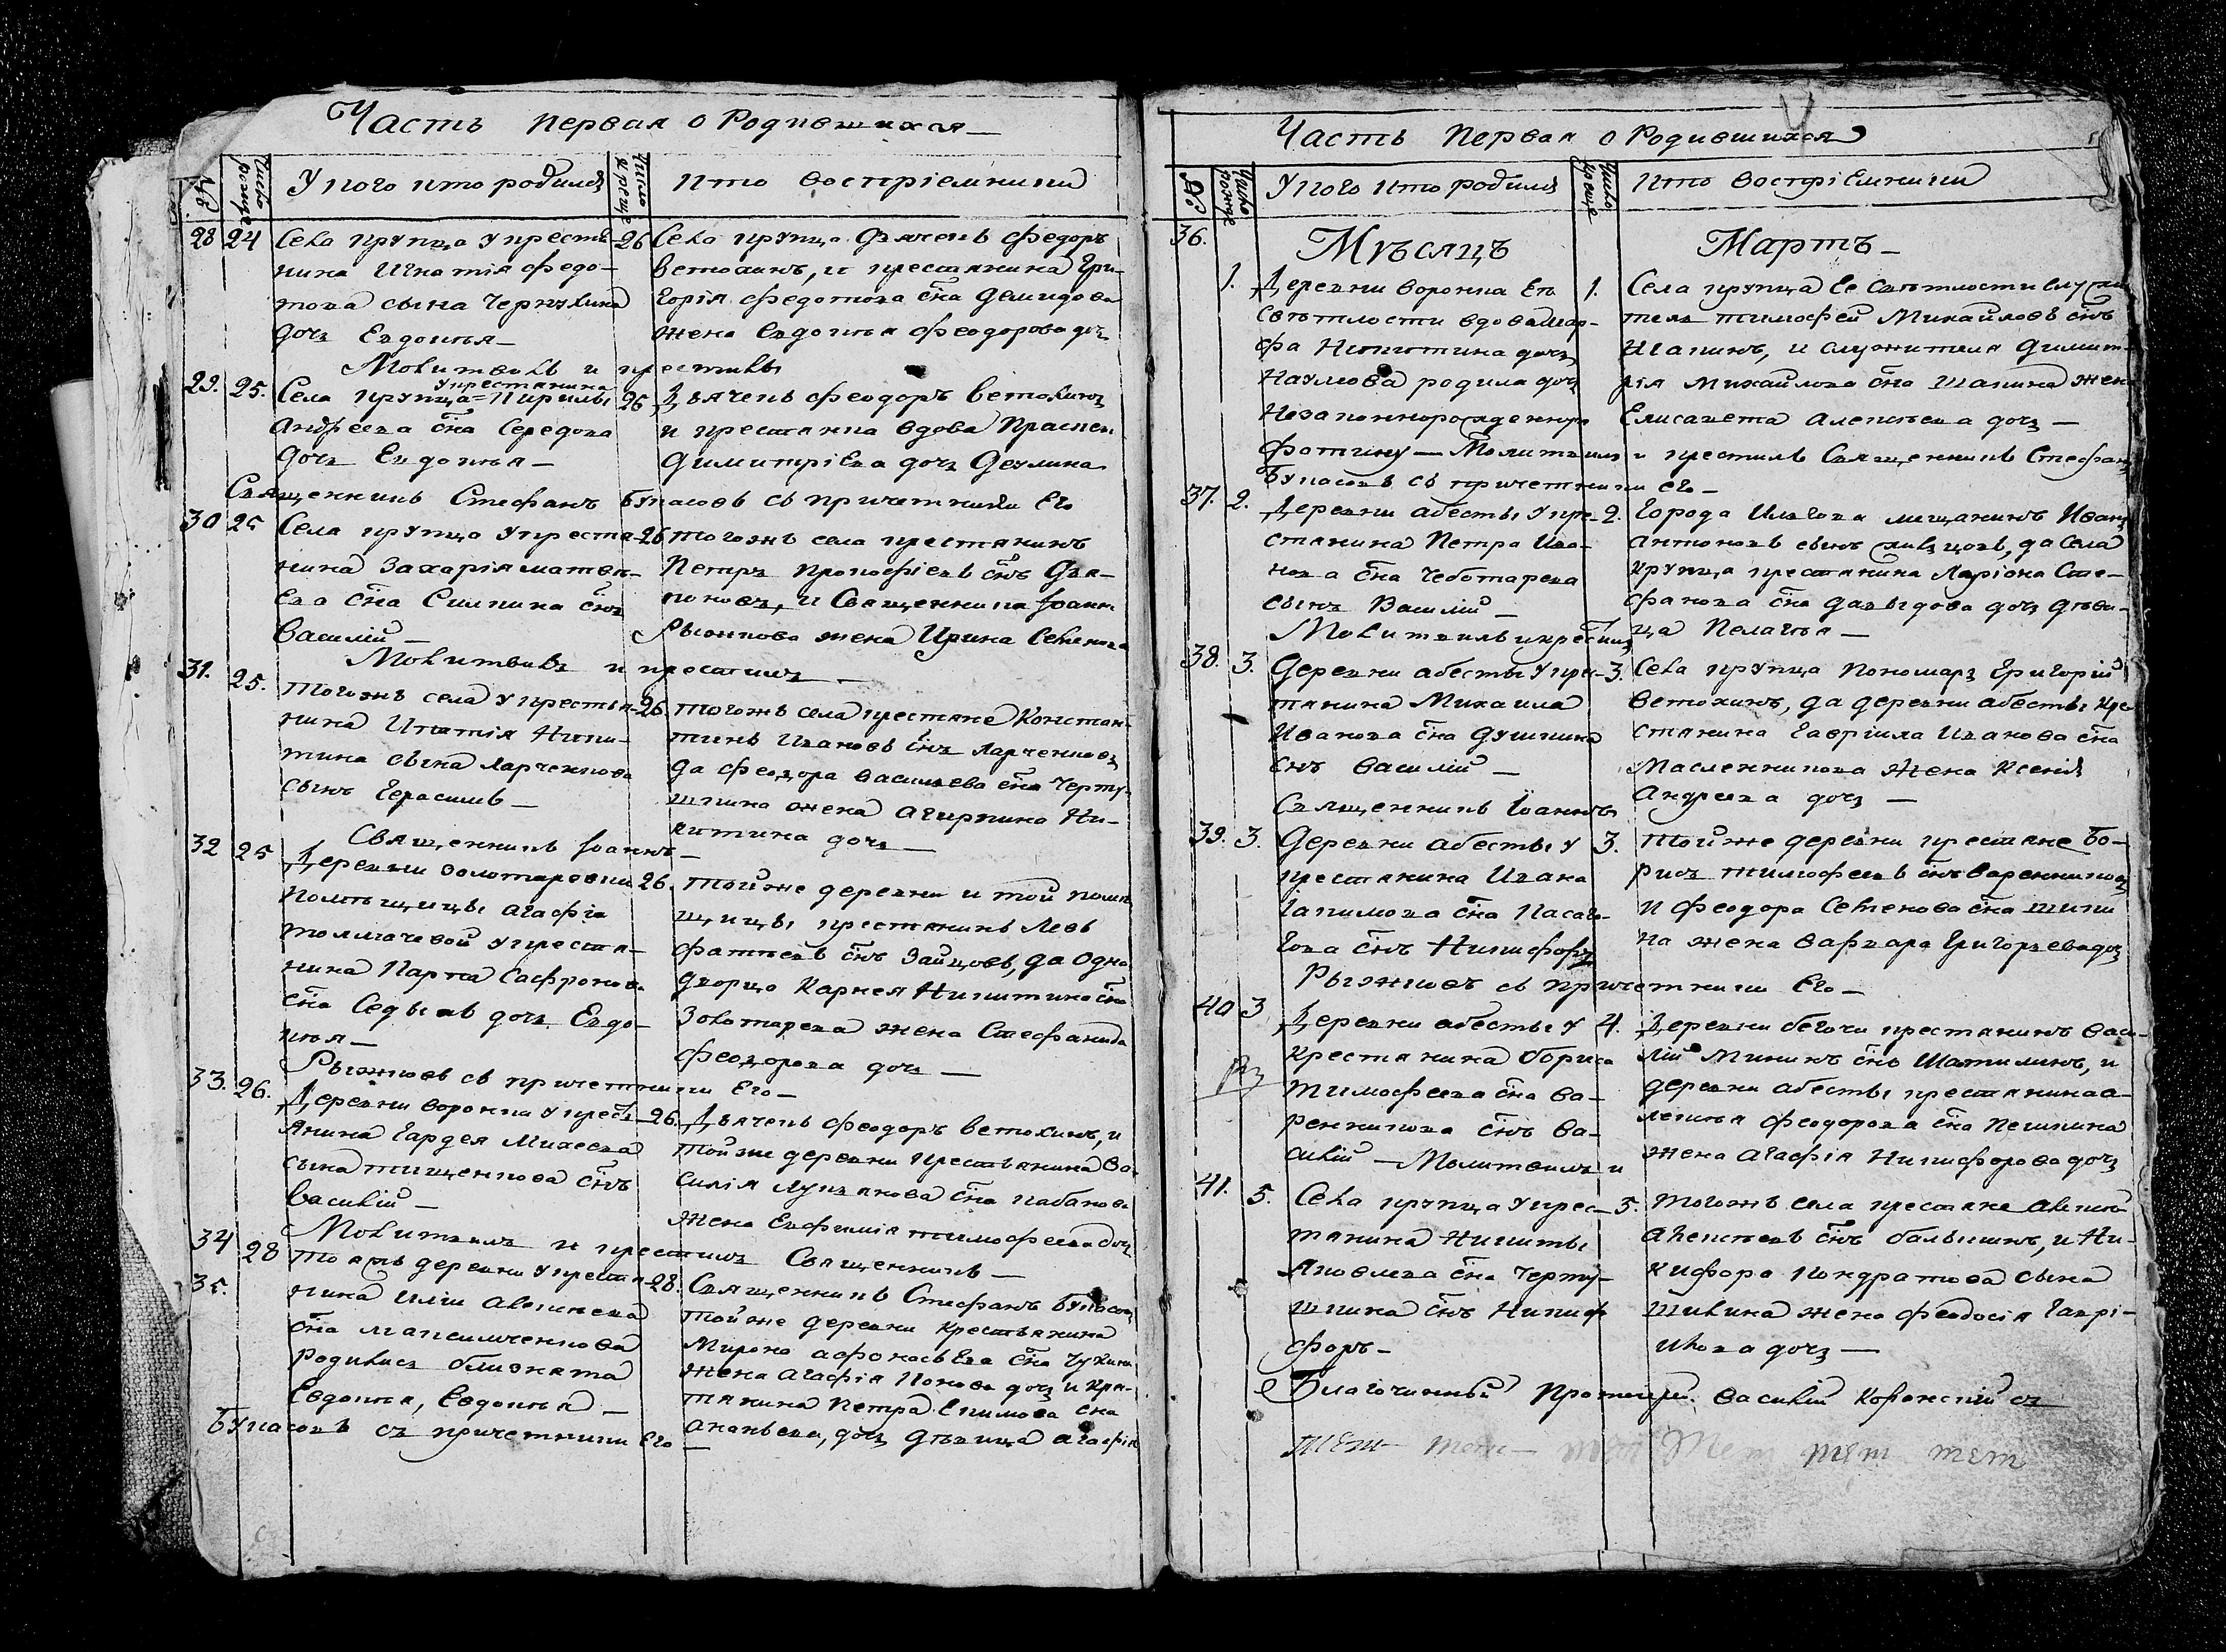 Часть первая о Родившихся
№
Число рожде
У кого кто родился
Число креще
кто воспріемники
28 24 Села крупца У крестья-
нина Игнатія Федо-
това сына Чернухина
дочь Евдокія
26 Села крупца Дьячекъ Федоръ
Ветохинъ, и крестьянина Гри-
горія Федотова сна Демидова
жена Евдокія Феодорова доч
Молитвилъ и крестилъ
29. 25. Села крупца У крестьянина Кирилы
Андреева сна Середова
дочь Евдокія
26 Дьячекъ Феодоръ Ветохинъ
и крестьянка вдова
Димитріева дочь
Священникъ Стефанъ Букасовъ съ причетники Его
30 25 Села крупца У крестья-
нина Захарія Матве-
ева сна Силкина снъ
Василій
26 тогожъ села крестьянинъ
Петръ Прокофіевъ снъ Дья-
коновъ, и Священника Іоанна
Рыжкова жена Ирина Семенова
Молитвилъ и крестилъ
31. 25. тогожъ села У крестья-
нина Ипатія Ники-
тина сына Ларченкова
сынъ Герасимъ
26. тогожъ села крестьяне Констан-
тинъ Ивановъ снъ Ларченковъ
да Феодора Васильева сна Черту-
шкина жена Агирпина Ни-
китина дочь
Священникъ Іоаннъ
32 25 Деревни Золотаревки
Помѣщицы Агафіи
Толмачевой У крестья-
нина Карпа Сафронова
сна Седыхъ дочь Евдо-
кія
26. тойже деревни и той помѣ-
щицы крестьянинъ Левъ
Фатѣевъ снъ Зайцовъ, да Одно
дворца Карнея Никитина сна
Золотарева жена Стефанида
Феодорова дочь
Рыжковъ съ причетники Его
33. 26. Деревни Воронка У крестья-
янина Гардея Михеева
сына Тищенкова снъ
Василій
26. Дьячекъ Феодоръ Ветохинъ, и
тойже деревни крестьянина Ва-
силія Лукьянова сна Кабанова
жена Евфимія Тимофеева доч
Молитвилъ и крестилъ Священникъ
34 28
35.
тояжъ деревни У крестья-
нина Иліи Алексеева
сна Максимченкова
Родились близната
Евдокія, Евдокія
28. Священникъ Стефанъ Букасовъ
тойже деревни крестьянина
Мирона Афонасьева сна
жена Агафія дочь и кре-
тянина Петра Екимова сна
Ананьева, дочь дѣвица Агафія
Букасовъ съ причетники Его
Часть Первая о Родившихся
№
Число рожде
У кого кто родился
Число креще
кто воспріемники
36.
Мѣсяцъ Мартъ
1. Деревни Воронка Ея
Свѣтлости вдова Мар-
фа Никитина дочь
Наумова родила дочь
Незаконнорожденную
Фотину — Молитвилъ и крестилъ Священникъ Стефанъ
Букасовъ съ причетники его
1. Села крупца Ее Свѣтлости служи
тель Тимофей Михайловъ снъ
Шапинъ, и служителя Димит-
рія Михайлова сна Шапина жена
Елисавета Алексѣева дочь
37. 2. Деревни Абесты У кре-
стянина Петра Ива-
нова сна Чеботарева
сынъ Василій
Молитвилъ и крестилъ
2. Города мщанинъ Иванъ
Антоновъ сынъ да села
крупца крестянина Ларіона Сте-
фанова сна Давыдова дочь дѣви-
ца Пелагѣя
38. 3. Деревни Абесты У крес-
тянина Михаила
Иванова сна Душкина
снъ Василій
Священникъ Іоаннъ
3. Села крупца Пономарь Григорій
Ветохинъ, да деревни Абесты кре
стянина Гавріила Иванова сна
Масленникова жена Ксенія
Андреева дочь
39. 3. Деревни Абесты У
крестянина Ивана
сна
снъ Никифоръ
3. тойже деревни крестяне Бо-
рисъ Тимофеевъ снъ Варенниковъ
и Феодора Семенова сна Шики
на жена Варвара Григорьева доч
Рыжковъ съ причетники Его
40 3 Деревни Абесты У
крестянина Бориса
Тимофеева сна Ва-
ренникова снъ Ва-
силій — Молитвилъ и
4. Деревни Бегочи крестянинъ Васи
лій Мининъ снъ Шатилинъ, и
деревни Абесты крестянина А-
лексѣя Феодорова сна Пешкина
жена Агафія Никифорова дочь
41. 5. Села крупца У крес-
тянина Никиты
Яковлева сна Черту-
шкина снъ Никиф
форъ
5. тогожъ села крестяне Алексѣй
Алексѣевъ снъ Балышинъ, и Ни-
кифора Кондратова сына
Шикина жена Феодосія Гаврі-
илова дочь
Благочинный Протоіерей Василій съ
тем тем тем тем тем тем